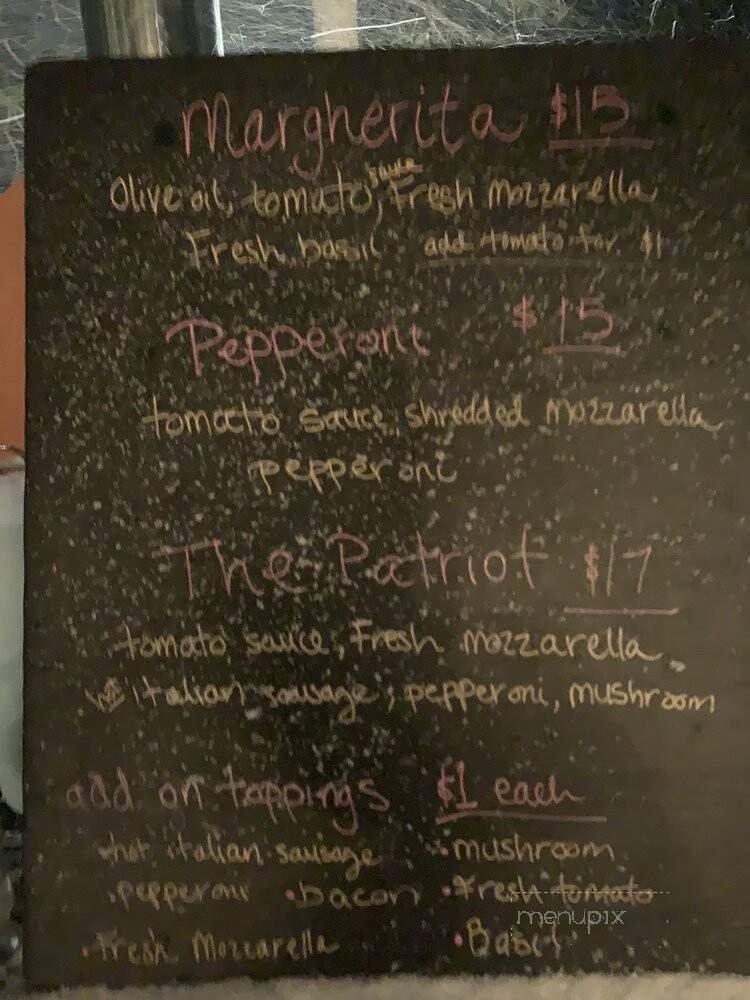 Margherita $15
Olive oil, tomato sauce, Fresh mozzarella
Fresh basil add tomato for $1
Pepperoni $15
tomato sauce, shredded mozzarella
pepperoni
The Patriot $17
tomato sauce, Fresh mozzarella
italian sausage, pepperoni, mushroom
add on toppings $1 each
hot italian sausage • mushroom
• pepperoni • bacon • Fresh tomato
menupix
• Fresh Mozzarella • Basil